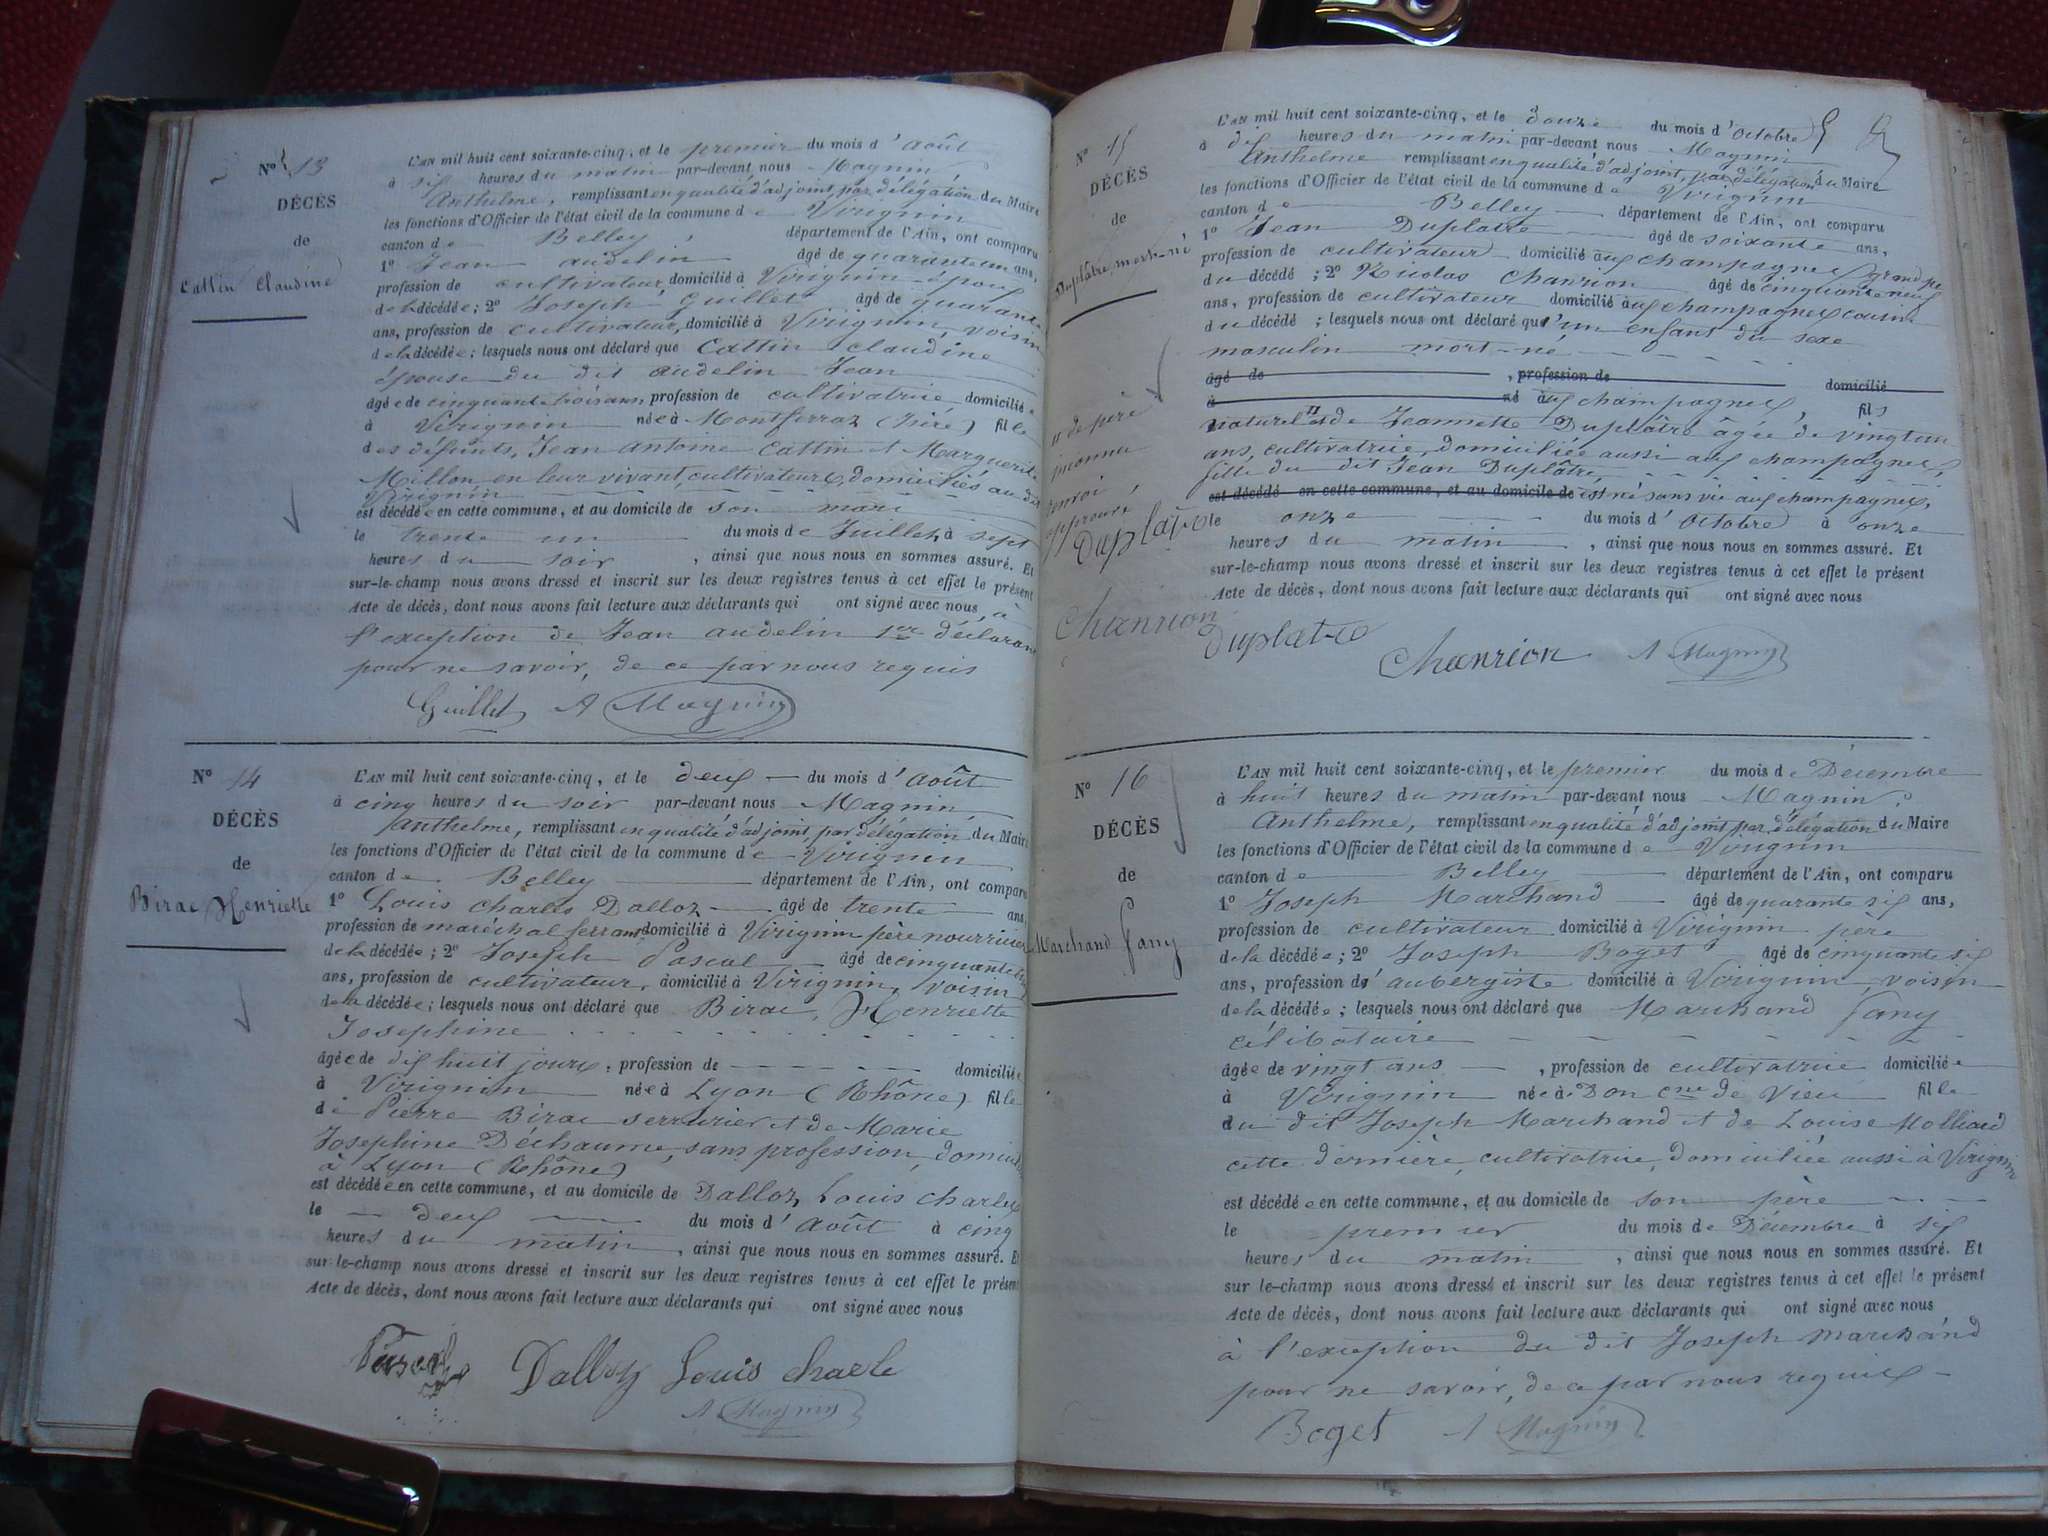 N° 13
DÉCÈS
de
Cattin Claudine
L'AN mil huit cent soixante-cinq, et le premier du mois d'Août
à six heures du matin par-devant nous Magnin
Anthelme, remplissant en qualité d'adjoint par délégation du Maire
les fonctions d'Officier de l'état civil de la commune de Virignin
canton de Belley, département de l'Ain, ont comparu
1° Jean audelin âgé de quarante un ans,
profession de cultivateur, domicilié à Virignin époux
de la décédée; 2° Joseph Guillet âgé de quarante
ans, profession de cultivateur, domicilié à Virignin, voisin
de la décédée; lesquels nous ont déclaré que Cattin claudine
épouse du dit audelin Jean
âgée de cinquante trois ans profession de cultivatrice domiciliée
à Virignin née à Montferraz (Isère) fille
des défunts, Jean antoine Cattin et Marguerite
Millon en leur vivant cultivateurs domiciliés au dit
Virignin
est décédée en cette commune, et au domicile de son mari
le trente un du mois de Juillet, à sept
heures du soir, ainsi que nous nous en sommes assuré. Et
sur-le-champ nous avons dressé et inscrit sur les deux registres tenus à cet effet le présent
Acte de décès, dont nous avons fait lecture aux déclarants qui ont signé avec nous, à
l'exception de Jean audelin 1er déclarant
pour ne savoir, de ce par nous requis
Guillet A Magnin
N° 14
DÉCÈS
de
Birac Henriette
L'AN mil huit cent soixante-cinq, et le deux du mois d'Août
à cinq heures du soir par-devant nous Magnin
Anthelme, remplissant en qualité d'adjoint par délégation du Maire
les fonctions d'Officier de l'état civil de la commune de Virignin
canton de Belley département de l'Ain, ont comparu
1° Louis Charles Dalloz âgé de trente ans,
profession de maréchal ferrant domicilié à Virignin père nourricier
de la décédée; 2° Joseph Pascal âgé de cinquante
ans, profession de cultivateur, domicilié à Virignin, voisin
de la décédée; lesquels nous ont déclaré que Birac, Henriette
Josephine
âgée de dix huit jours, profession de domiciliée
à Virignin née à Lyon (Rhône) fille
de Pierre Birac serrurier et de Marie
Josephine Déchaume, sans profession, domiciliés
à Lyon (Rhône)
est décédée en cette commune, et au domicile de Dalloz, Louis charles
le deux du mois d'Août à cinq
heures du matin, ainsi que nous nous en sommes assuré. Et
sur-le-champ nous avons dressé et inscrit sur les deux registres tenus à cet effet le présent
Acte de décès, dont nous avons fait lecture aux déclarants qui ont signé avec nous
Pascal Dalloz Louis charle
A Magnin
N° 15
DÉCÈS
de
Duplâtre mort-né
L'AN mil huit cent soixante-cinq, et le douze du mois d'Octobre
à dix heures du matin par-devant nous Magnin
Anthelme remplissant en qualité d'adjoint, par délégation du Maire
les fonctions d'Officier de l'état civil de la commune de Virignin
canton de Belley département de l'Ain, ont comparu
1° Jean Duplatre âgé de soixante ans,
profession de cultivateur domicilié aux champagnes grand père
du décédé; 2° Nicolas Chanrion âgé de cinquante neuf
ans, profession de cultivateur domicilié aux champagnes cousin
du décédé; lesquels nous ont déclaré qu'un enfant du sexe
masculin mort-né
âgé de , profession de domicilié
à né aux champagnes, fils
naturel et de Jeannette Duplâtre âgée de vingt un
ans, cultivatrice, domiciliée aussi aux champagnes,
fille du dit Jean Duplâtre
est décédé en cette commune, et au domicile de est né sans vie aux champagnes,
le onze du mois d'Octobre à onze
heures du matin, ainsi que nous nous en sommes assuré. Et
sur-le-champ nous avons dressé et inscrit sur les deux registres tenus à cet effet le présent
Acte de décès, dont nous avons fait lecture aux déclarants qui ont signé avec nous
Duplatre Chanrion A Magnin
de père
inconnu
renvoi
approuvé
Duplatre
Chanrion
N° 16
DÉCÈS
de
Marchand Fany
L'AN mil huit cent soixante-cinq, et le premier du mois de Décembre
à huit heures du matin par-devant nous Magnin
Anthelme, remplissant en qualité d'adjoint par délégation du Maire
les fonctions d'Officier de l'état civil de la commune de Virignin
canton de Belley département de l'Ain, ont comparu
1° Joseph Marchand âgé de quarante six ans,
profession de cultivateur domicilié à Virignin père
de la décédée; 2° Joseph Boget âgé de cinquante six
ans, profession d'aubergiste domicilié à Virignin, voisin
de la décédée; lesquels nous ont déclaré que Marchand Fany
célibataire
âgée de vingt ans, profession de cultivatrice domiciliée
à Virignin née à Don cne de Vieu fille
du dit Joseph Marchand et de Louise Molliard
cette dernière, cultivatrice, domiciliée aussi à Virignin
est décédée en cette commune, et au domicile de son père
le premier du mois de Décembre à six
heures du matin, ainsi que nous nous en sommes assuré. Et
sur le-champ nous avons dressé et inscrit sur les deux registres tenus à cet effet le présent
Acte de décès, dont nous avons fait lecture aux déclarants qui ont signé avec nous
à l'exception du dit Joseph marchand
pour ne savoir, de ce par nous requis
Boget A Magnin